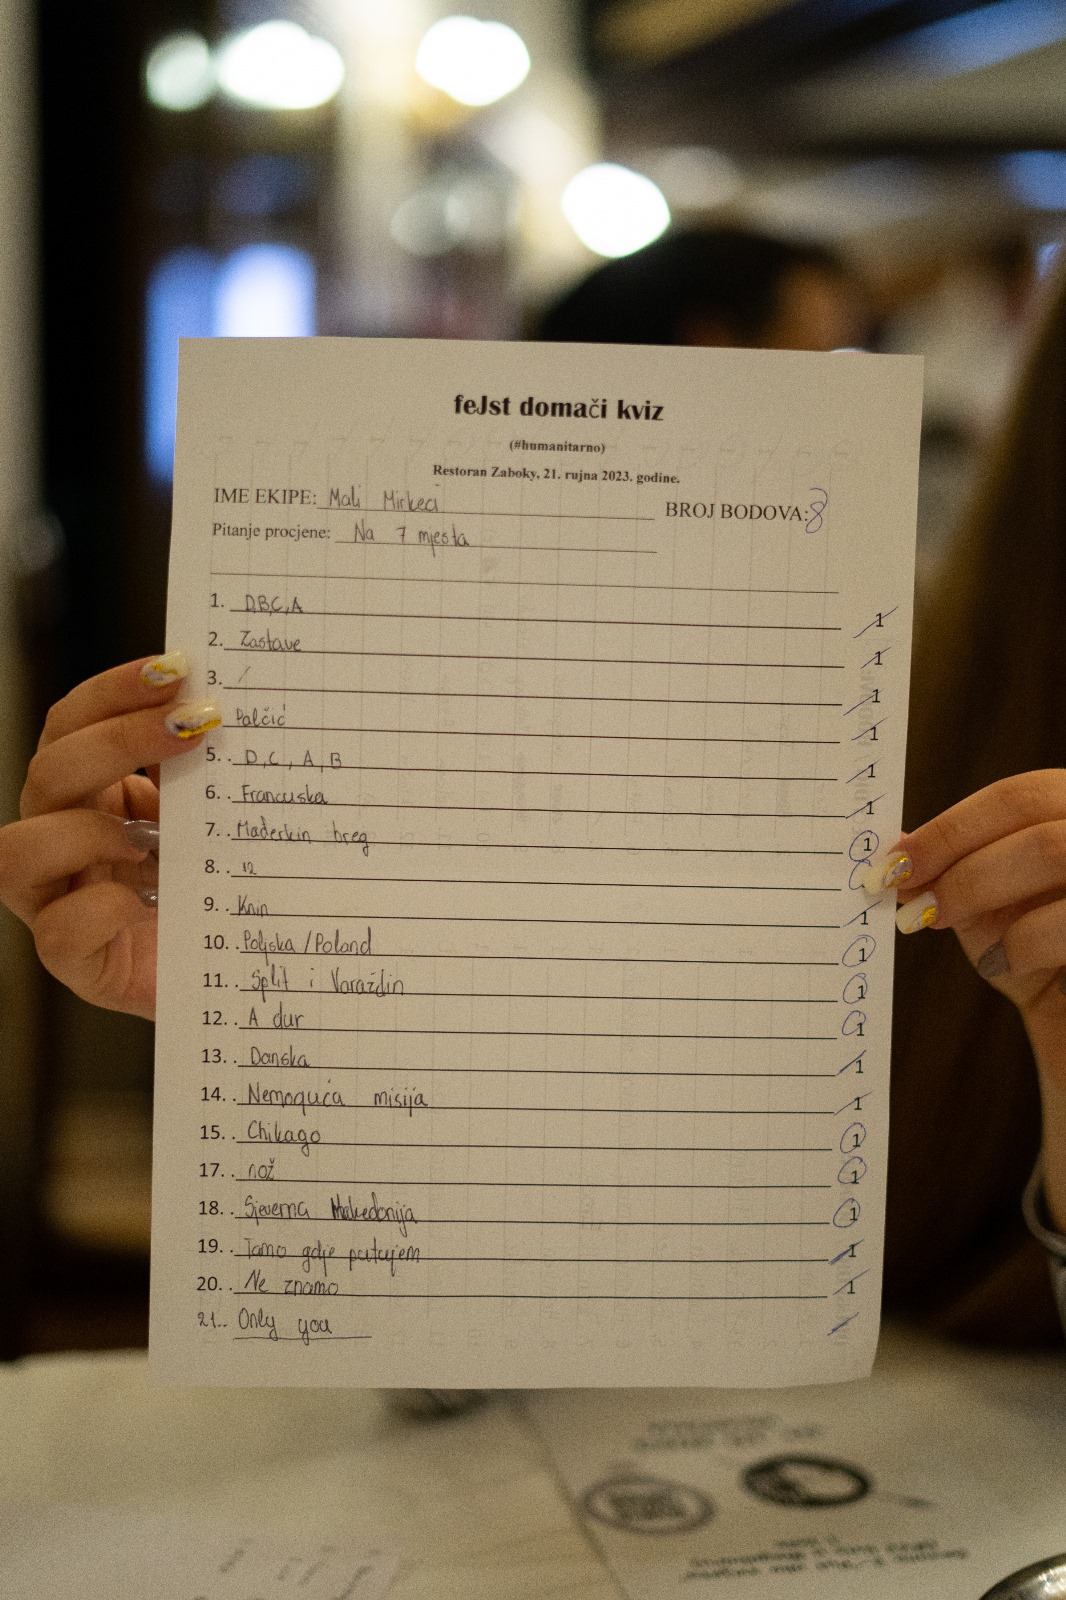 feJst domači kviz
(#humanitarno)
Restoran Zaboky, 21. rujna 2023. godine.
IME EKIPE: Mali Mirkeci BROJ BODOVA: 8
Pitanje procjene: Na 7 mjesta
1. D,B,C,A 1
2. Zastave 1
3. / 1
Palčić 1
5. . D, C, A, B 1
6. . Francuska 1
7. . Mađerkin breg 1
8. . 12
9. . Knin 1
10. . Poljska / Poland 1
11. . Split i Varaždin 1
12. . A dur 1
13. . Danska 1
14. . Nemoguća misija 1
15. . Chikago 1
17. . nož 1
18. . Sjeverna Makedonija 1
19. . Tamo gdje putujem 1
20. . Ne znamo 1
21.. Only you